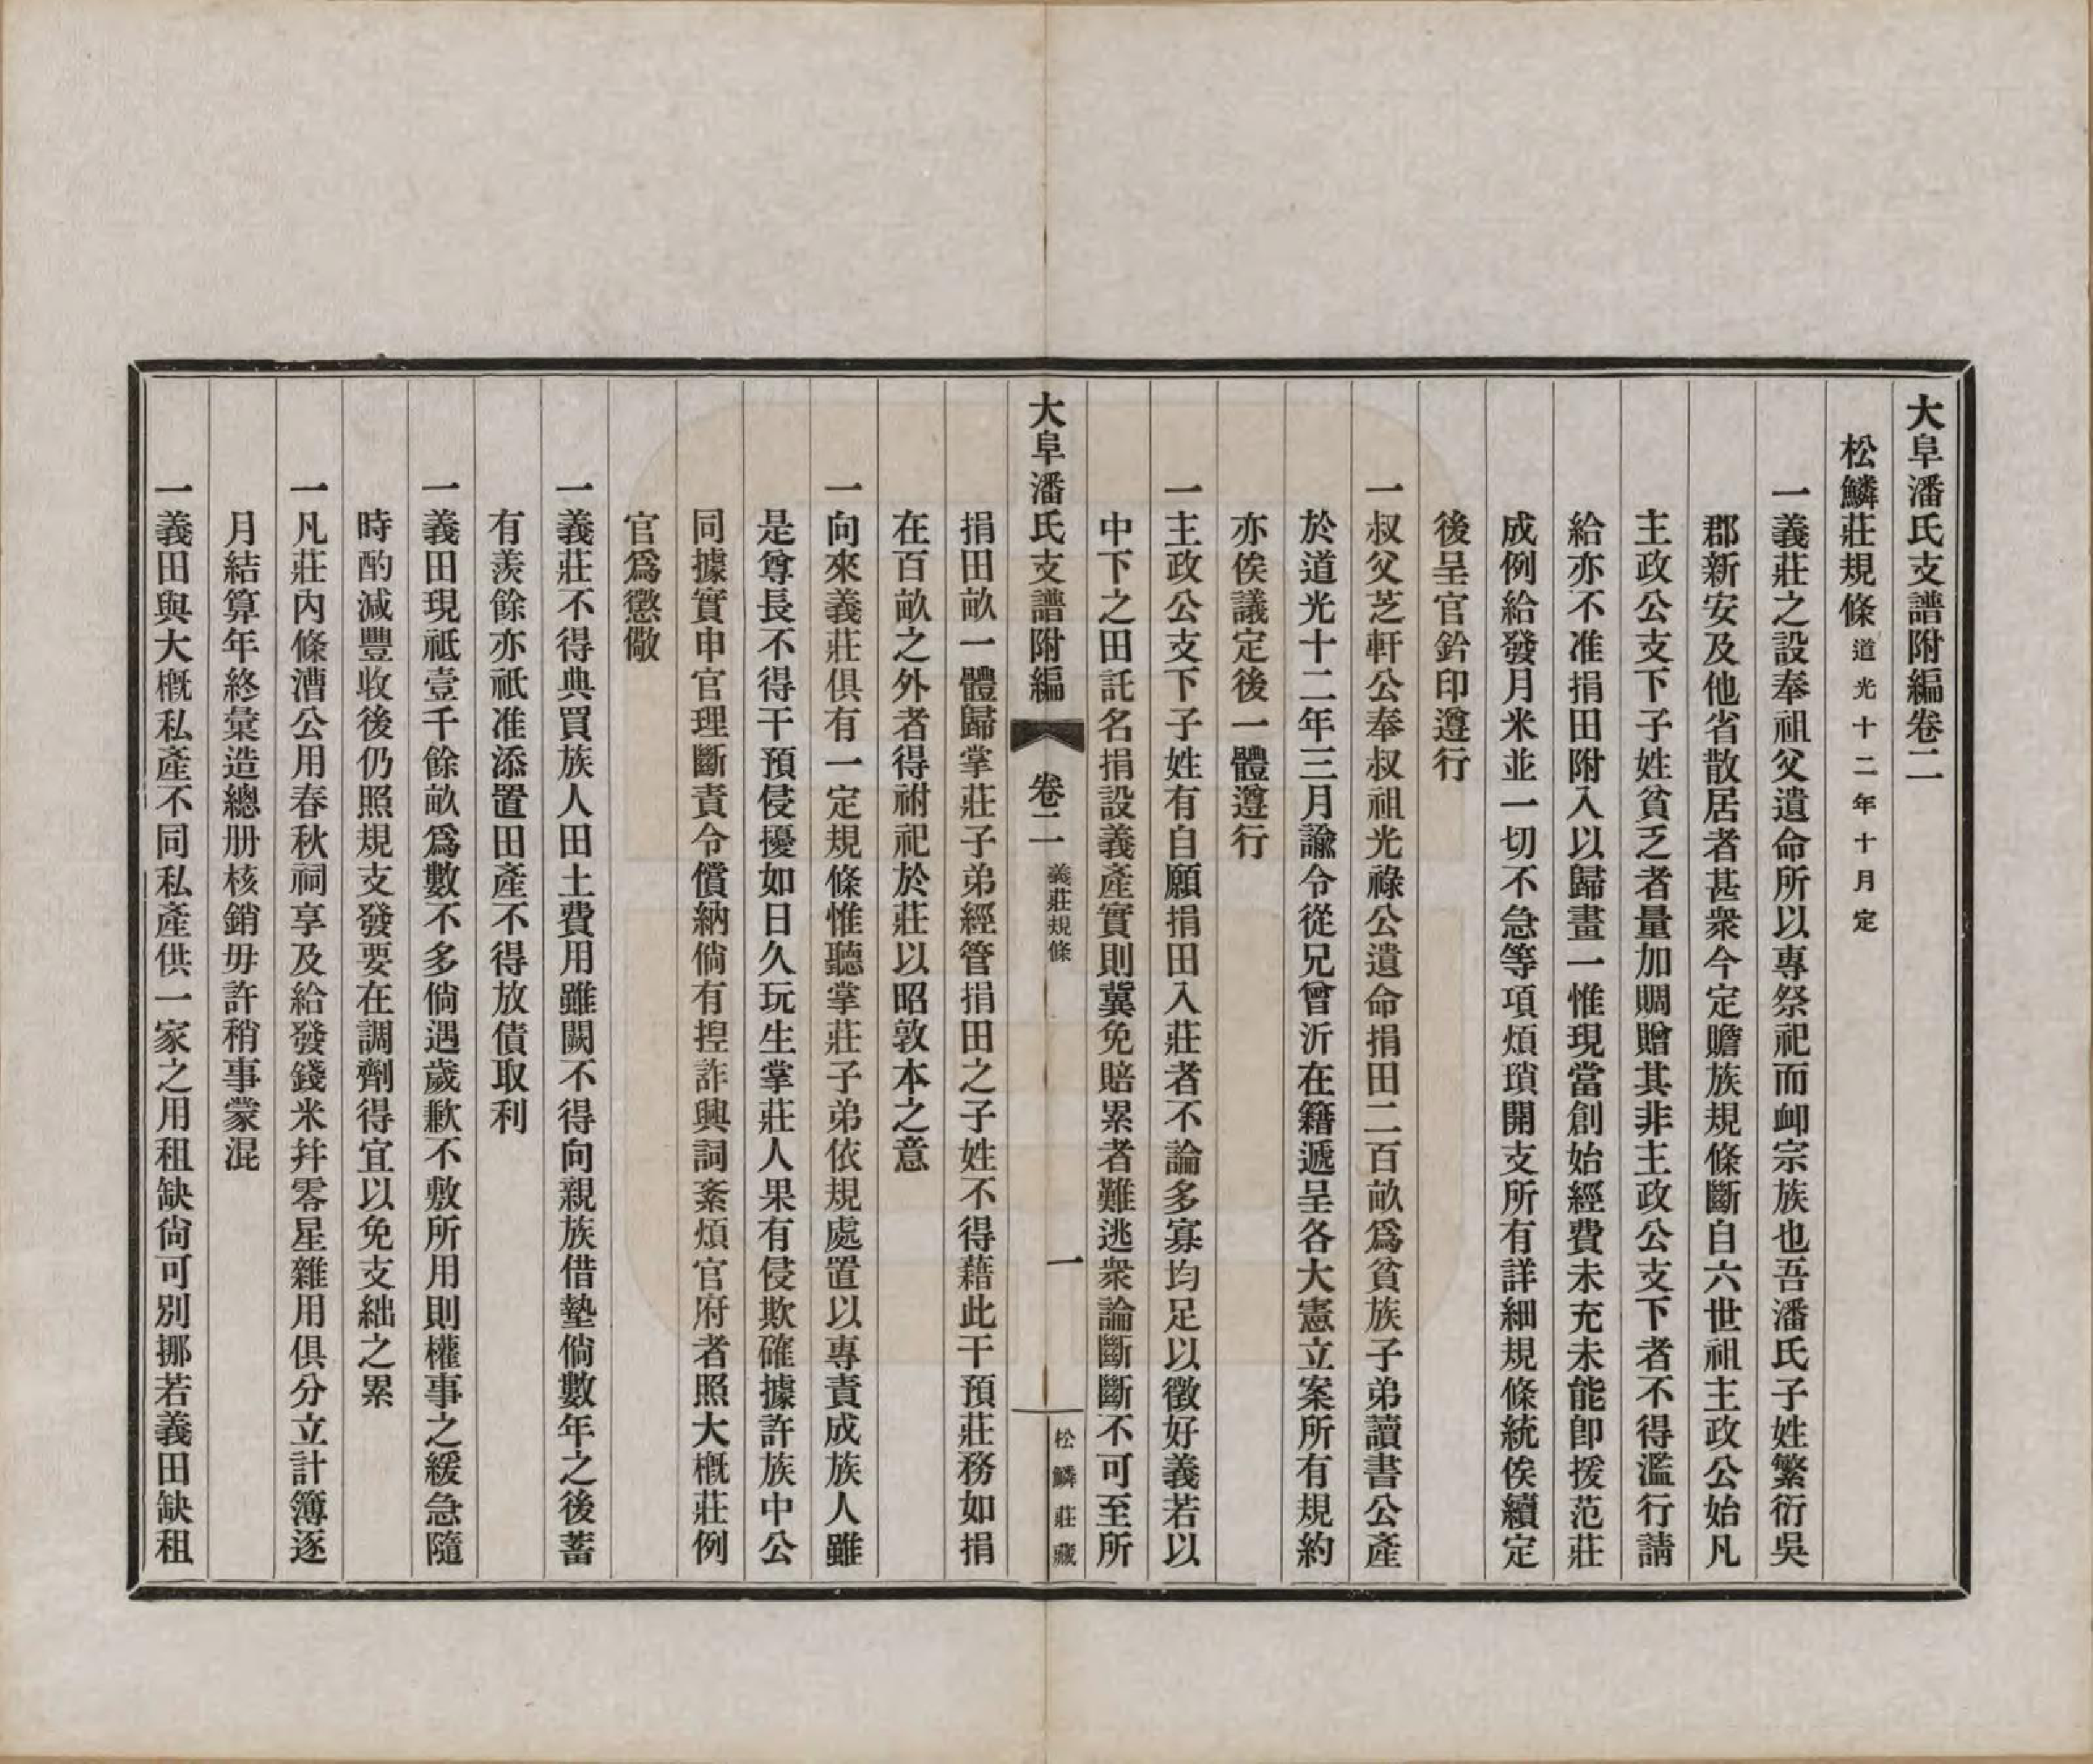 大阜潘氏支譜附編卷二
松鱗莊規條道光十二年十月定
一義莊之設奉祖父遺命所以專祭祀而卹宗族也吾潘氏子姓繁衍吳
郡新安及他省散居者甚衆今定贍族規條斷自六世祖主政公始凡
主政公支下子姓貧乏者量加賙贈其非主政公支下者不得濫行請
給亦不准捐田附入以歸畫一惟現當創始經費未充未能卽援范莊
成例給發月米並一切不急等項煩瑣開支所有詳細規條統俟續定
後呈官鈐印遵行
一叔父芝軒公奉叔祖光祿公遺命捐田二百畝爲貧族子弟讀書公產
於道光十二年三月諭令從兄曾沂在籍遞呈各大憲立案所有規約
亦俟議定後一體遵行
一主政公支下子姓有自願捐田入莊者不論多寡均足以徵好義若以
中下之田託名捐設義產實則冀免賠累者難逃衆論斷斷不可至所
大阜潘氏支譜附編 卷二 義莊規條 一 松鱗莊藏
捐田畝一體歸掌莊子弟經管捐田之子姓不得藉此干預莊務如捐
在百畝之外者得祔祀於莊以昭敦本之意
一向來義莊俱有一定規條惟聽掌莊子弟依規處置以專責成族人雖
是尊長不得干預侵擾如日久玩生掌莊人果有侵欺確據許族中公
同據實申官理斷責令償納倘有揑詐興詞紊煩官府者照大槪莊例
官爲懲儆
一義莊不得典買族人田土費用雖闕不得向親族借墊倘數年之後蓄
有羨餘亦祇准添置田產不得放債取利
一義田現祗壹千餘畝爲數不多倘遇歲歉不敷所用則權事之緩急隨
時酌減豐收後仍照規支發要在調劑得宜以免支絀之累
一凡莊內條漕公用春秋祠享及給發錢米幷零星雜用俱分立計簿逐
月結算年終彙造總册核銷毋許稍事蒙混
一義田與大槪私產不同私產供一家之用租缺尙可別挪若義田缺租